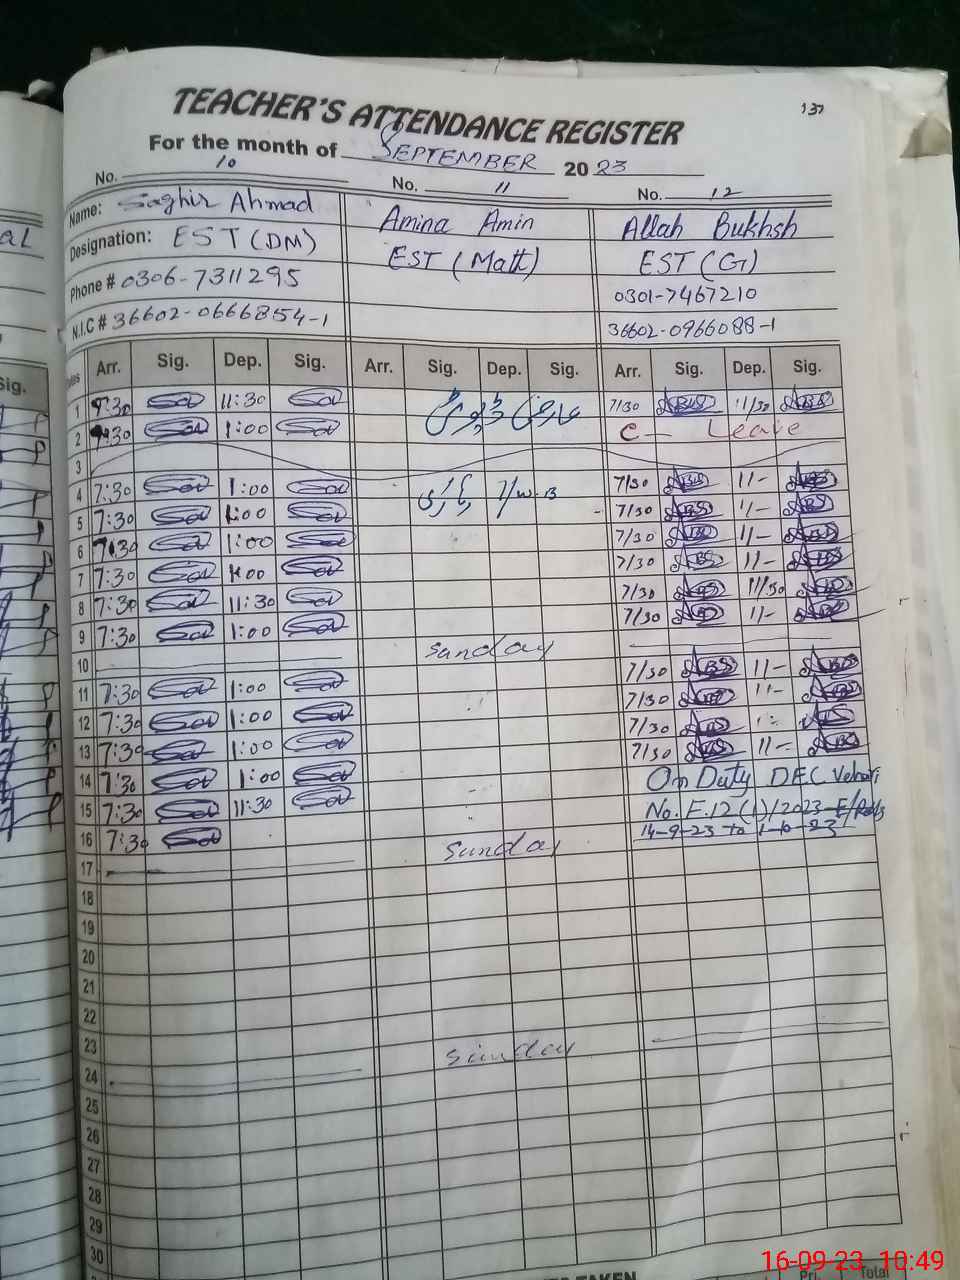 137
TEACHER'S ATTENDANCE REGISTER
For the month of SEPTEMBER 2023
No. 10 No. 11 No. 12
Name: Saghir Ahmad Amina Amin Allah Bukhsh
Designation: EST (DM) EST (Math) EST (G)
Phone # 0306-7311295 0301-7467210
N.I.C # 36602-0666854-1 36602-0966088-1
Arr. Sig. Dep. Sig. Arr. Sig. Dep. Sig. Arr. Sig. Dep. Sig.
1 7:30 11:30 عارضی ڈیوٹی 7/30 11/30
2 7:30 1:00 C - Leave
3
4 7:30 1:00 7/30 11-
5 7:30 1:00 7/30 11-
6 7:30 1:00 7/30 11-
7 7:30 1:00 7/30 11-
8 7:30 11:30 7/30 11/30
9 7:30 1:00 7/30 11-
10 Sunday
11 7:30 1:00 7/30 11-
12 7:30 1:00 7/30 11-
13 7:30 1:00 7/30
14 7:30 1:00 7/30 11-
15 7:30 11:30 On Duty DEC Vehari
16 7:30 No. F.12(1)/2023-E/
14-9-23 to
17 Sunday
18
19
20
21
22
23
24 Sunday
25
26
27
28
29
30
TAKEN Total
16-09-23 10:49